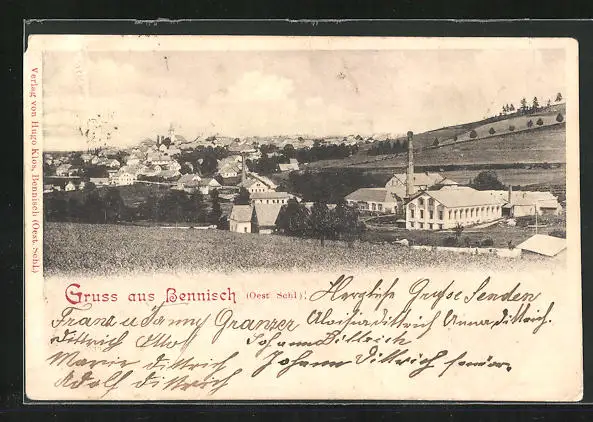 Verlag von Hugo Klos, Bennisch (Oest. Schl.)
Gruss aus Bennisch (Oest. Schl.)!
Herzliche Grüße Senden
Franz u Fanny Granzer Aloisia Dittrich Anna Dittrich.
Dittrich Otto Johann Dittrich
Marie Dittrich Johann Dittrich senior.
Adolf Dittrich